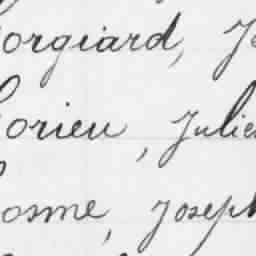 orgiard, J
orieu, Julie
osme, Joseph